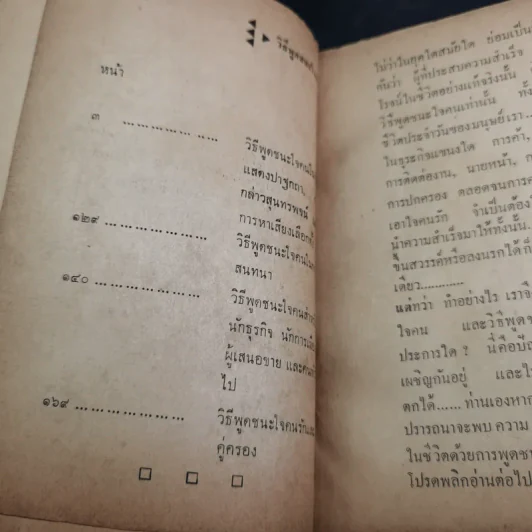 วิธีพูดชนะใ
หน้า
๓ ................ ..... วิธีพูดชนะใจคนใน
แสดงปาฐกถา,
กล่าวสุนทรพจน์
การหาเสียงเลือก
๑๒๙ ..................... วิธีพูดชนะใจคนใน
สนทนา
๑๔๐ ..................... วิธีพูดชนะใจคนสำ
นักธุรกิจ นักการเมือ
ผู้เสนอขาย และคน
ไป
๑๖๙ ..................... วิธีพูดชนะใจคนรักแล
คู่ครอง
□ □ □
ไม่ว่าในยุคใดสมัยใด ย่อมเป็น
กันว่า ผู้ที่ประสบความสำเร็จ
โรจน์ในชีวิตอย่างแท้จริงนั้น
วิธีพูดชนะใจคนเท่านั้น ทั้ง
ชีวิตประจำวันของมนุษย์เรา...
ในธุรกิจแขนงใด การค้า,
การติดต่องาน, นายหน้า,
การปกครอง ตลอดจนการค
เอาใจคนรัก จำเป็นต้อง
นำความสำเร็จมาให้ทั้งนั้น.
ขึ้นสวรรค์หรือลงนรกได้ก็
เดียว............
แต่ทว่า ทำอย่างไร เราจึง
ใจคน และวิธีพูดช
ประการใด ? นี่คือปัญ
เผชิญกันอยู่ และไ
ตกได้...... ท่านเองหาก
ปรารถนาจะพบ ความ
ในชีวิตด้วยการพูดชน
โปรดพลิกอ่านต่อไป